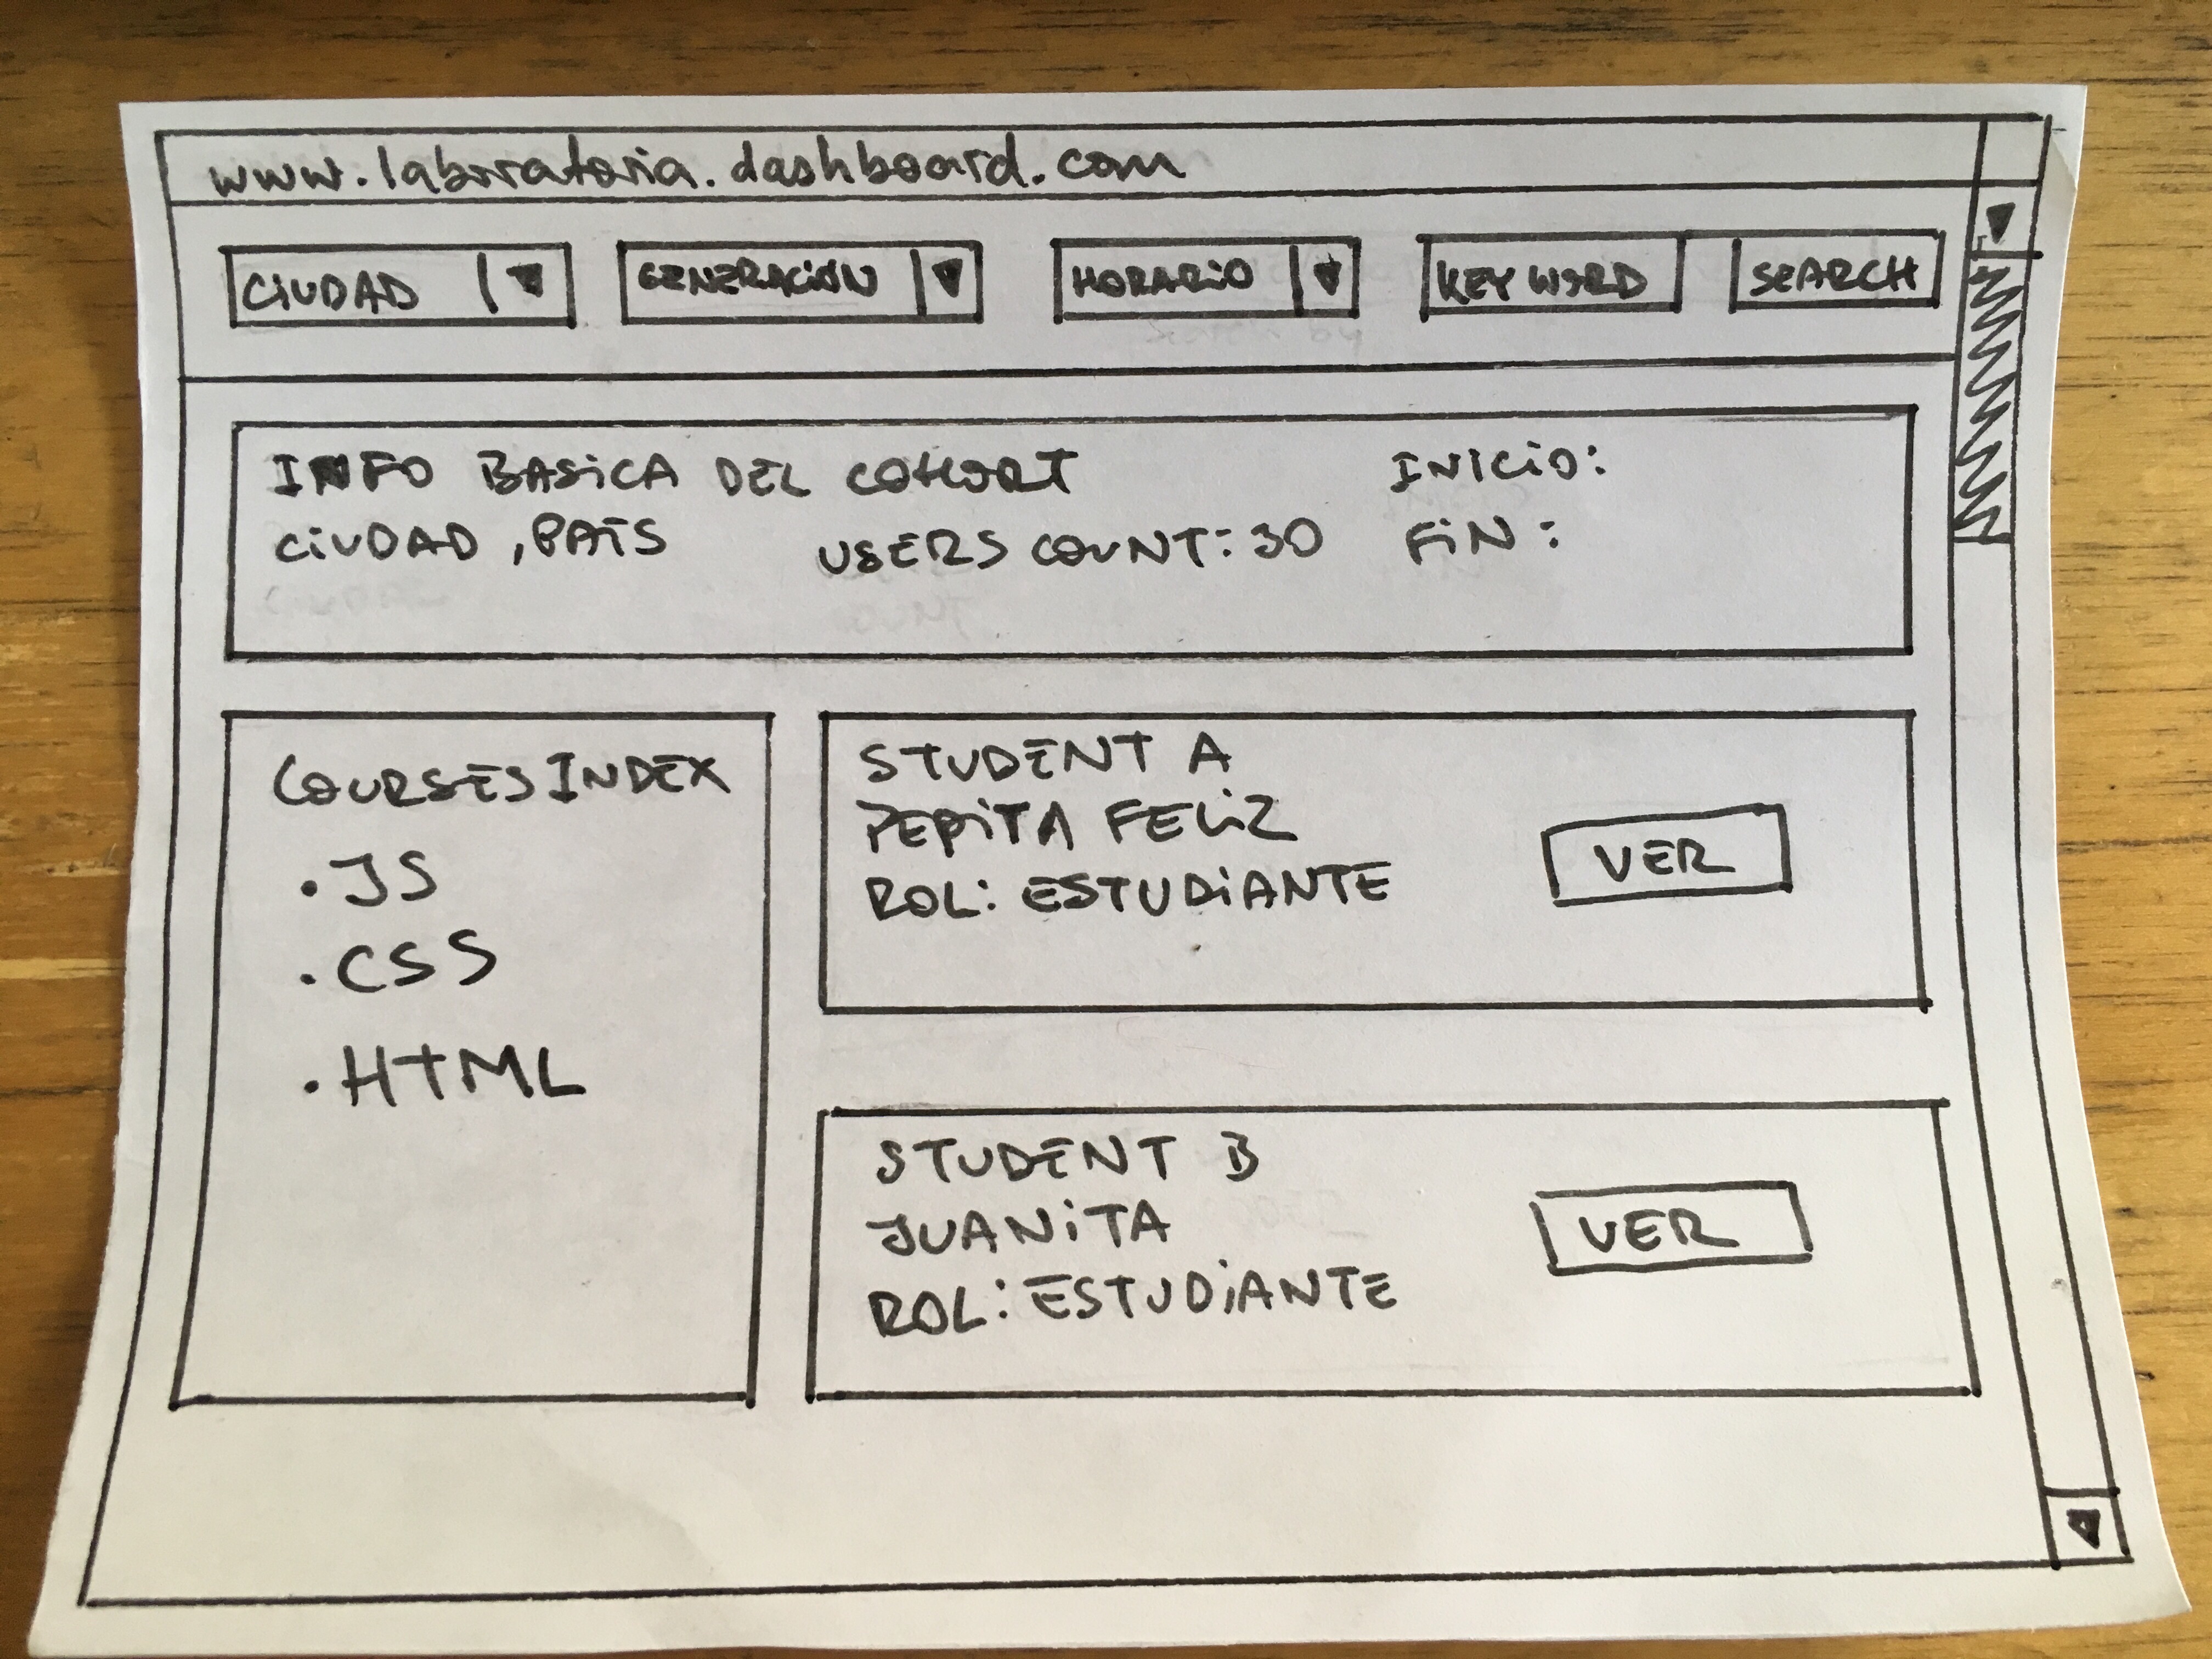 www.laboratoria.dashboard.com
CIUDAD GENERACIÓN HORARIO KEYWORD SEARCH
INFO BASICA DEL COHORT INICIO:
CIUDAD, PAÍS USERS COUNT: 30 FIN:
COURSES INDEX
· JS
· CSS
· HTML
STUDENT A
PEPITA FELIZ
ROL: ESTUDIANTE
VER
STUDENT B
JUANITA
ROL: ESTUDIANTE
VER